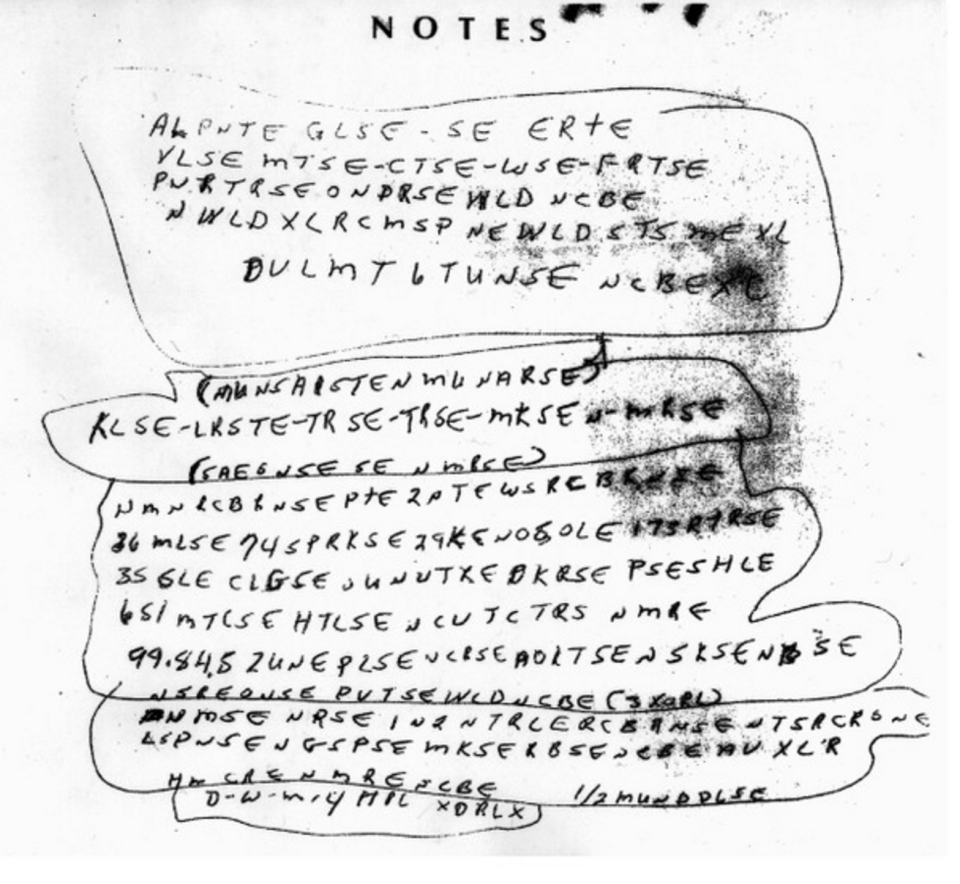 NOTES
ALPNTE GLSE - SE ERTE
VLSE MTSE-CTSE-WSE-FRTSE
PNRTRSE ONDRSE WLD NCBE
NWLDXLRCMSP NEWLD STS MEXL
DULMT6TUNSE NCBEXC
(MUNSAISTEN MUNARSE)
KLSE-LRSTE-TRSE-TRSE-MKSEN-MRSE
(SAE6NSE SE NMRSE)
NMNRCBRNSE PTE2PTEWSRCBRNSE
36 MLSE 74SPRKSE 29KENOSOLE 173RTRSE
35 GLE CLGSE UUNUTXE DKRSE PSESHLE
651 MTCSE HTLSE NCUTCTRS NMRE
99.84.5 ZUNEPLSE NCRSE AOLTSE NSKSE NBSE
NSREONSE PUTSE WLD NCBE (3XORL)
NMSE NRSE IN2NTRLERCBRNSE NTSRCRONE
LSPNSE NGSPSE MKSERBSE NCBE AUXL'R
HM CRE NMRE NCBE
1/2 MUNDDLSE
D-W-M-4 MPL XDRLX